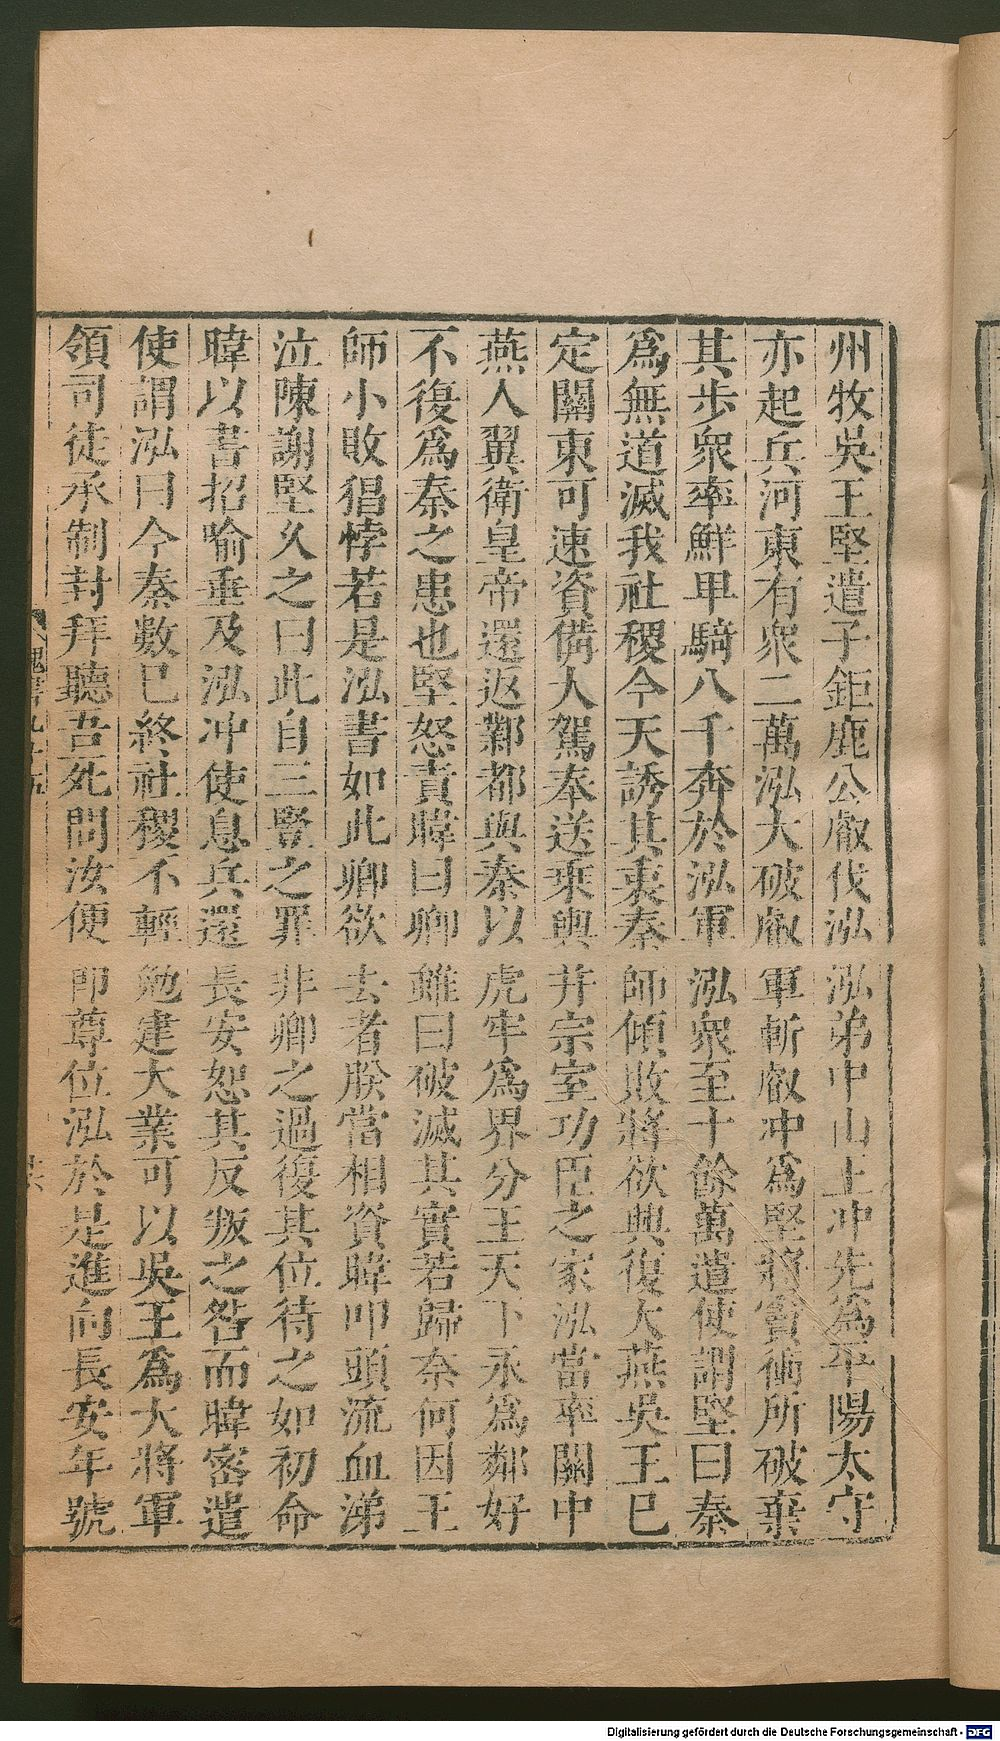 州牧吳王堅遣子鉅鹿公叡伐泓泓弟中山王沖先為平陽太守
亦起兵河東有眾二萬泓大破叡軍斬叡沖為堅將竇衝所破棄
其步眾率鮮卑騎八千奔於泓軍泓眾至十餘萬遣使謂堅曰秦
為無道滅我社稷今天誘其衷秦師傾敗將欲興復大燕吳王已
定關東可速資備大駕奉送乘輿并宗室功臣之家泓當率關中
燕人翼衛皇帝還返鄴都與秦以虎牢為界分王天下永為鄰好
不復為秦之患也堅怒責暐曰卿雖曰破滅其實若歸奈何因王
師小敗猖悖若是泓書如此卿欲去者朕當相資暐叩頭流血涕
泣陳謝堅久之曰此自三豎之罪非卿之過復其位待之如初命
暐以書招喻垂及泓沖使息兵還長安恕其反叛之咎而暐密遣
使謂泓曰今秦數已終社稷不輕勉建大業可以吳王為大將軍
領司徒承制封拜聽吾死問汝便即尊位泓於是進向長安年號
Digitalisierung gefördert durch die Deutsche Forschungsgemeinschaft - DFG